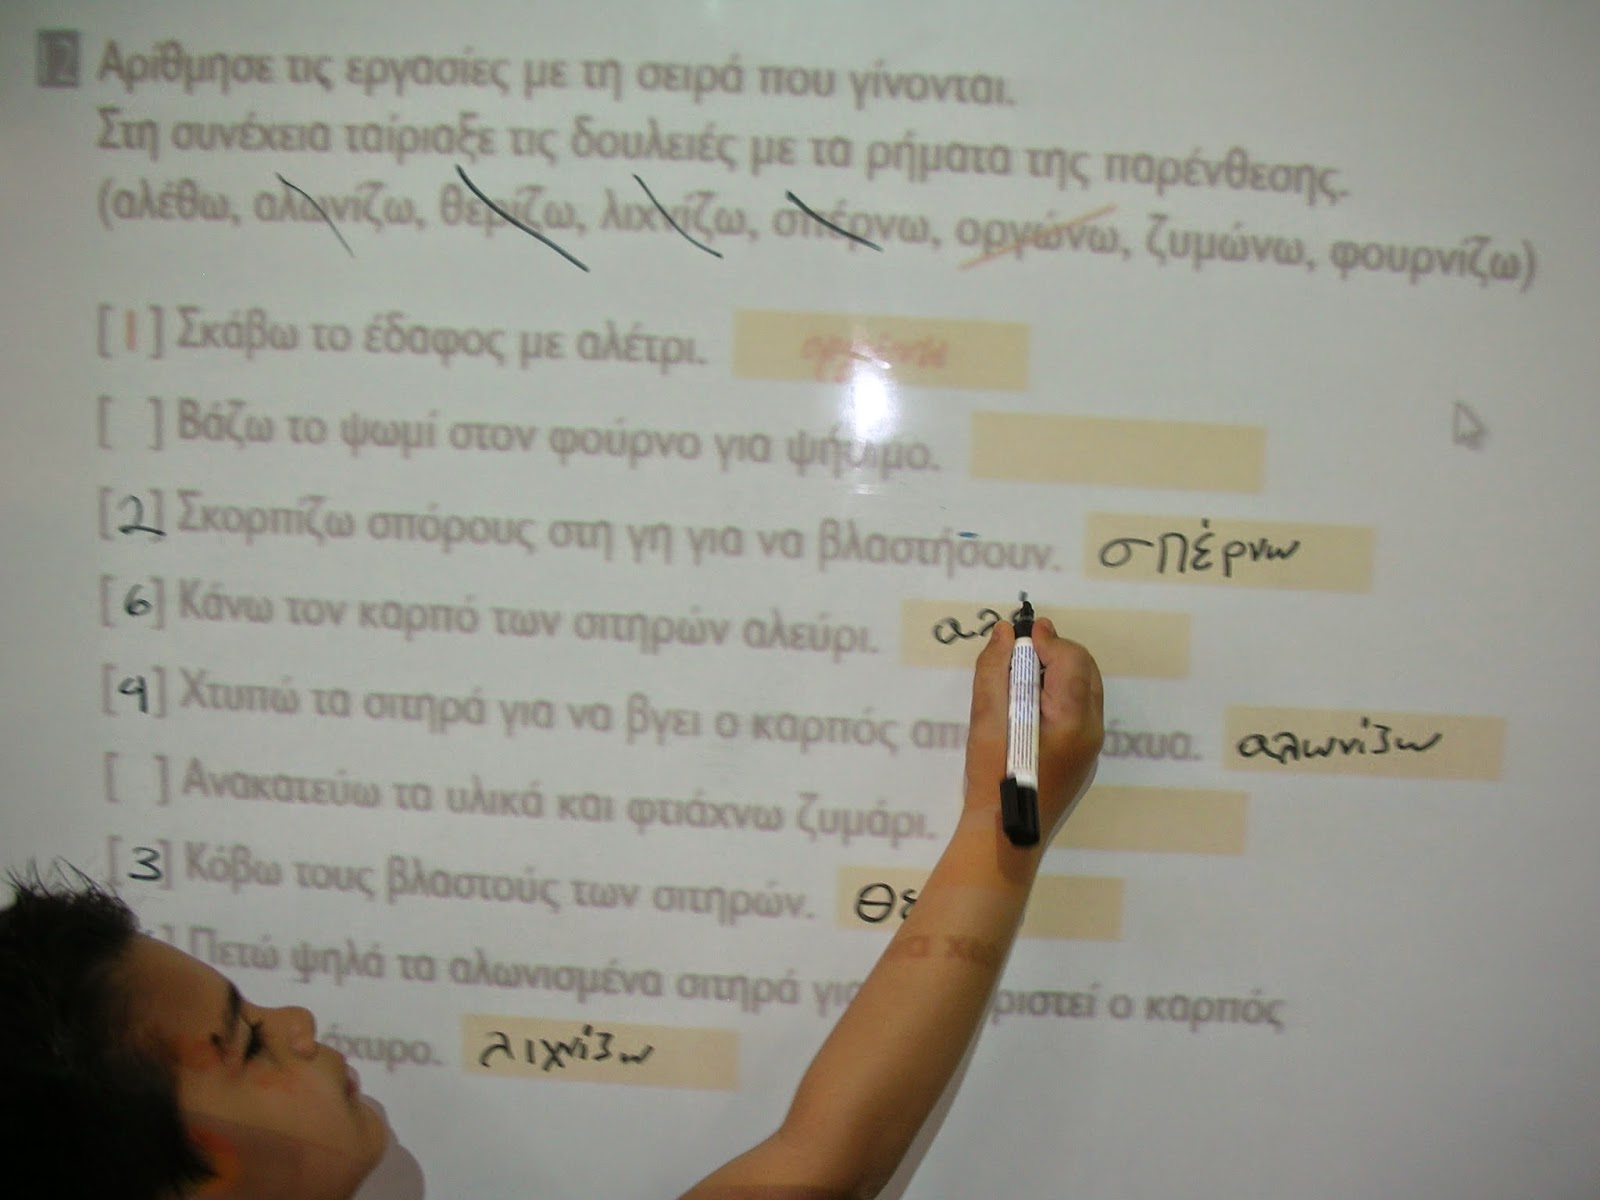 2 Αρίθμησε τις εργασίες με τη σειρά που γίνονται.
Στη συνέχεια ταίριαξε τις δουλειές με τα ρήματα της παρένθεσης.
(αλέθω, αλωνίζω, θερίζω, λιχνίζω, σπέρνω, οργώνω, ζυμώνω, φουρνίζω)
[1] Σκάβω το έδαφος με αλέτρι.
[ ] Βάζω το ψωμί στον φούρνο για ψήσιμο.
[2] Σκορπίζω σπόρους στη γη για να βλαστήσουν. σπέρνω
[6] Κάνω τον καρπό των σιτηρών αλεύρι. αλέ
[4] Χτυπώ τα σιτηρά για να βγει ο καρπός από άχυα. αλωνίζω
[ ] Ανακατεύω τα υλικά και φτιάχνω ζυμάρι.
[3] Κόβω τους βλαστούς των σιτηρών. θε
Πετώ ψηλά τα αλωνισμένα σιτηρά για ριστεί ο καρπός
άχυρο. λιχνίζω